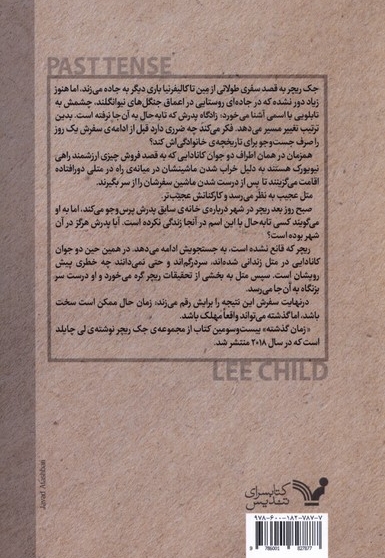 PAST TENSE
جک ریچر به قصد سفری طولانی از مین تا کالیفرنیا باری دیگر به جاده می‌زند، اما هنوز
زیاد دور نشده که در جاده‌ای روستایی در اعماق جنگل‌های نیوانگلند، چشمش به
تابلویی با اسمی آشنا می‌خورد: زادگاه پدرش که تابه‌حال به آن‌جا نرفته است. بدین
ترتیب تغییر مسیر می‌دهد. فکر می‌کند چه ضرری دارد قبل از ادامه‌ی سفرش یک روز
را صرف جست‌وجو برای تاریخچه‌ی خانوادگی‌اش کند؟
همزمان در همان اطراف دو جوان کانادایی که به قصد فروش چیزی ارزشمند راهی
نیویورک هستند به دلیل خراب شدن ماشینشان در میانه‌ی راه در متلی دورافتاده
اقامت می‌گزینند تا پس از درست شدن ماشین سفرشان را از سر بگیرند.
متل عجیب به نظر می‌رسد و کارکنانش عجیب‌تر.
صبح روز بعد ریچر در شهر درباره‌ی خانه‌ی سابق پدرش پرس‌وجو می‌کند، اما به او
می‌گویند کسی تابه‌حال با این اسم در آنجا زندگی نکرده است. آیا پدرش هرگز در آن
شهر بوده است؟
ریچر که قانع نشده است، به جستجویش ادامه می‌دهد. در همین حین دو جوان
کانادایی در متل زندانی شده‌اند، سردرگم‌اند و حتی نمی‌دانند چه خطری پیش
رویشان است. سپس متل به بخشی از تحقیقات ریچر گره می‌خورد و او درست سر
بزنگاه به آن‌جا می‌رسد.
درنهایت سفرش این نتیجه را برایش رقم می‌زند: زمان حال ممکن است سخت
باشد، اما گذشته می‌تواند واقعاً مهلک باشد.
«زمان گذشته» بیست‌وسومین کتاب از مجموعه‌ی جک ریچر نوشته‌ی لی چایلد
است که در سال ۲۰۱۸ منتشر شد.
LEE CHILD
کتابسرای
تندیس
۹۷۸-۶۰۰-۱۸۲-۷۸۷-۷
9 786001 827877